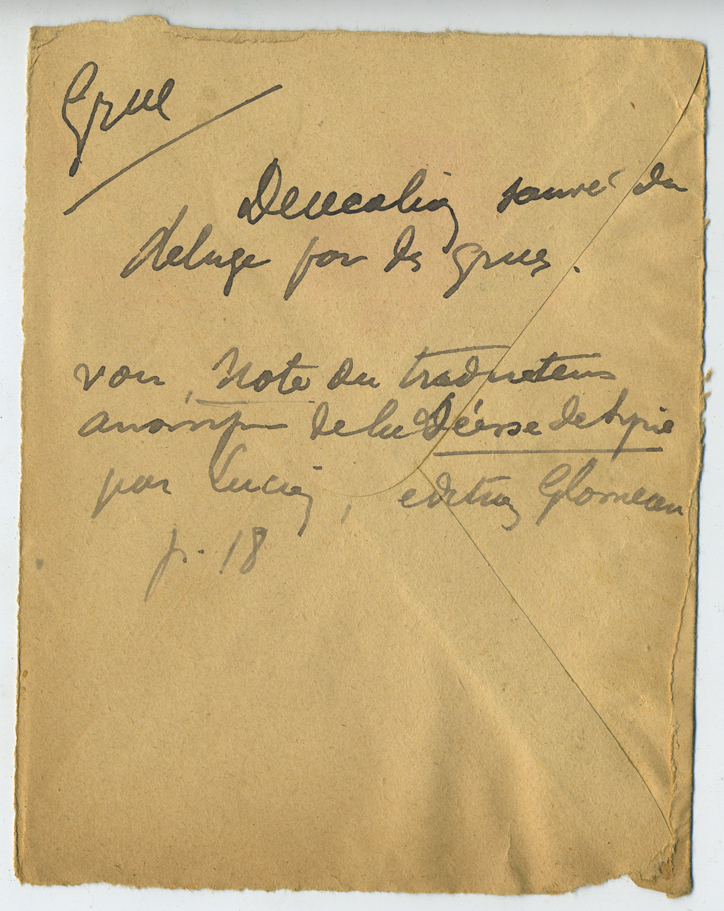 Grue
Deucalion sauvé du
deluge par des grues.
voir, Note du traducteur
anonyme de la Déesse de Syrie
par Lucien, edition Glomeau
p. 18